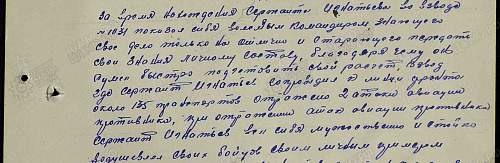 За время нахождения Сержанта Игнатьева во взводе
~1031 показал себя волевым командиром знающего
свое дело только на отлично и старающего передать
свои знания личному составу, благодаря чему он
сумел быстро подготовить свой расчет, взвод
где сержант Игнатьев сопроводил к линии фронта
около 135 транспортов отражено 2 атаки авиации
противника, при отражении атак авиации противника
Сержант Игнатьев вел себя мужественно и стойко
воодушевлял своих бойцов своим личным примером